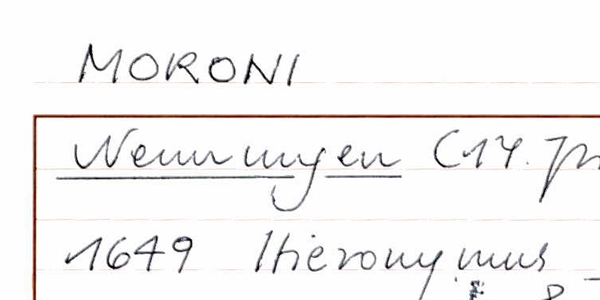 MORONI
Nenningen (14.
1649 Hieronymus